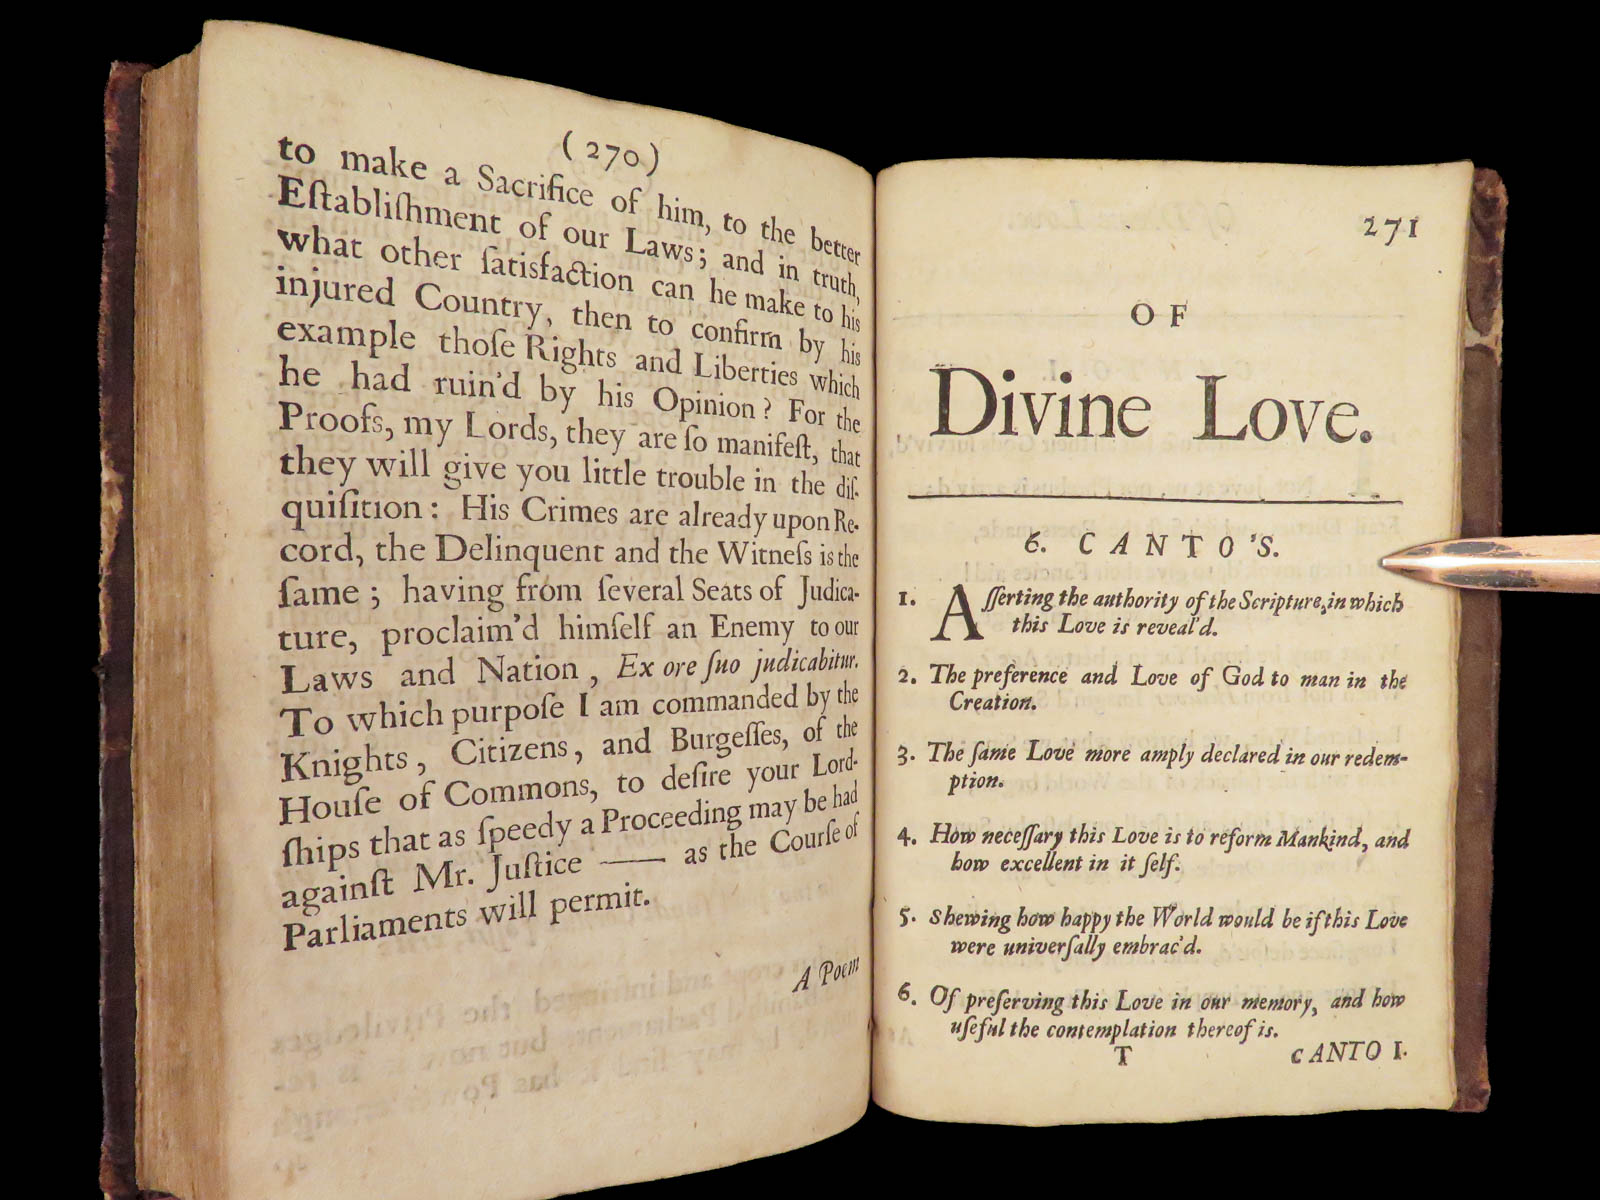 (270)
to make a Sacrifice of him, to the better
Eſtabliſhment of our Laws; and in truth,
what other ſatisfaction can he make to his
injured Country, then to confirm by his
example thoſe Rights and Liberties which
he had ruin'd by his Opinion? For the
Proofs, my Lords, they are ſo manifeſt, that
they will give you little trouble in the diſ-
quiſition: His Crimes are already upon Re-
cord, the Delinquent and the Witneſs is the
ſame; having from ſeveral Seats of Judica-
ture, proclaim'd himſelf an Enemy to our
Laws and Nation, Ex ore ſuo judicabitur.
To which purpoſe I am commanded by the
Knights, Citizens, and Burgeſſes, of the
Houſe of Commons, to deſire your Lord-
ſhips that as ſpeedy a Proceeding may be had
againſt Mr. Juſtice —— as the Courſe of
Parliaments will permit.
A Poem
271
OF
Divine Love.
6. CANTO'S.
1. Aſſerting the authority of the Scripture, in which
this Love is reveal'd.
2. The preference and Love of God to man in the
Creation.
3. The ſame Love more amply declared in our redem-
ption.
4. How neceſſary this Love is to reform Mankind, and
how excellent in it ſelf.
5. Shewing how happy the World would be if this Love
were univerſally embrac'd.
6. Of preſerving this Love in our memory, and how
uſeful the contemplation thereof is.
T CANTO I.